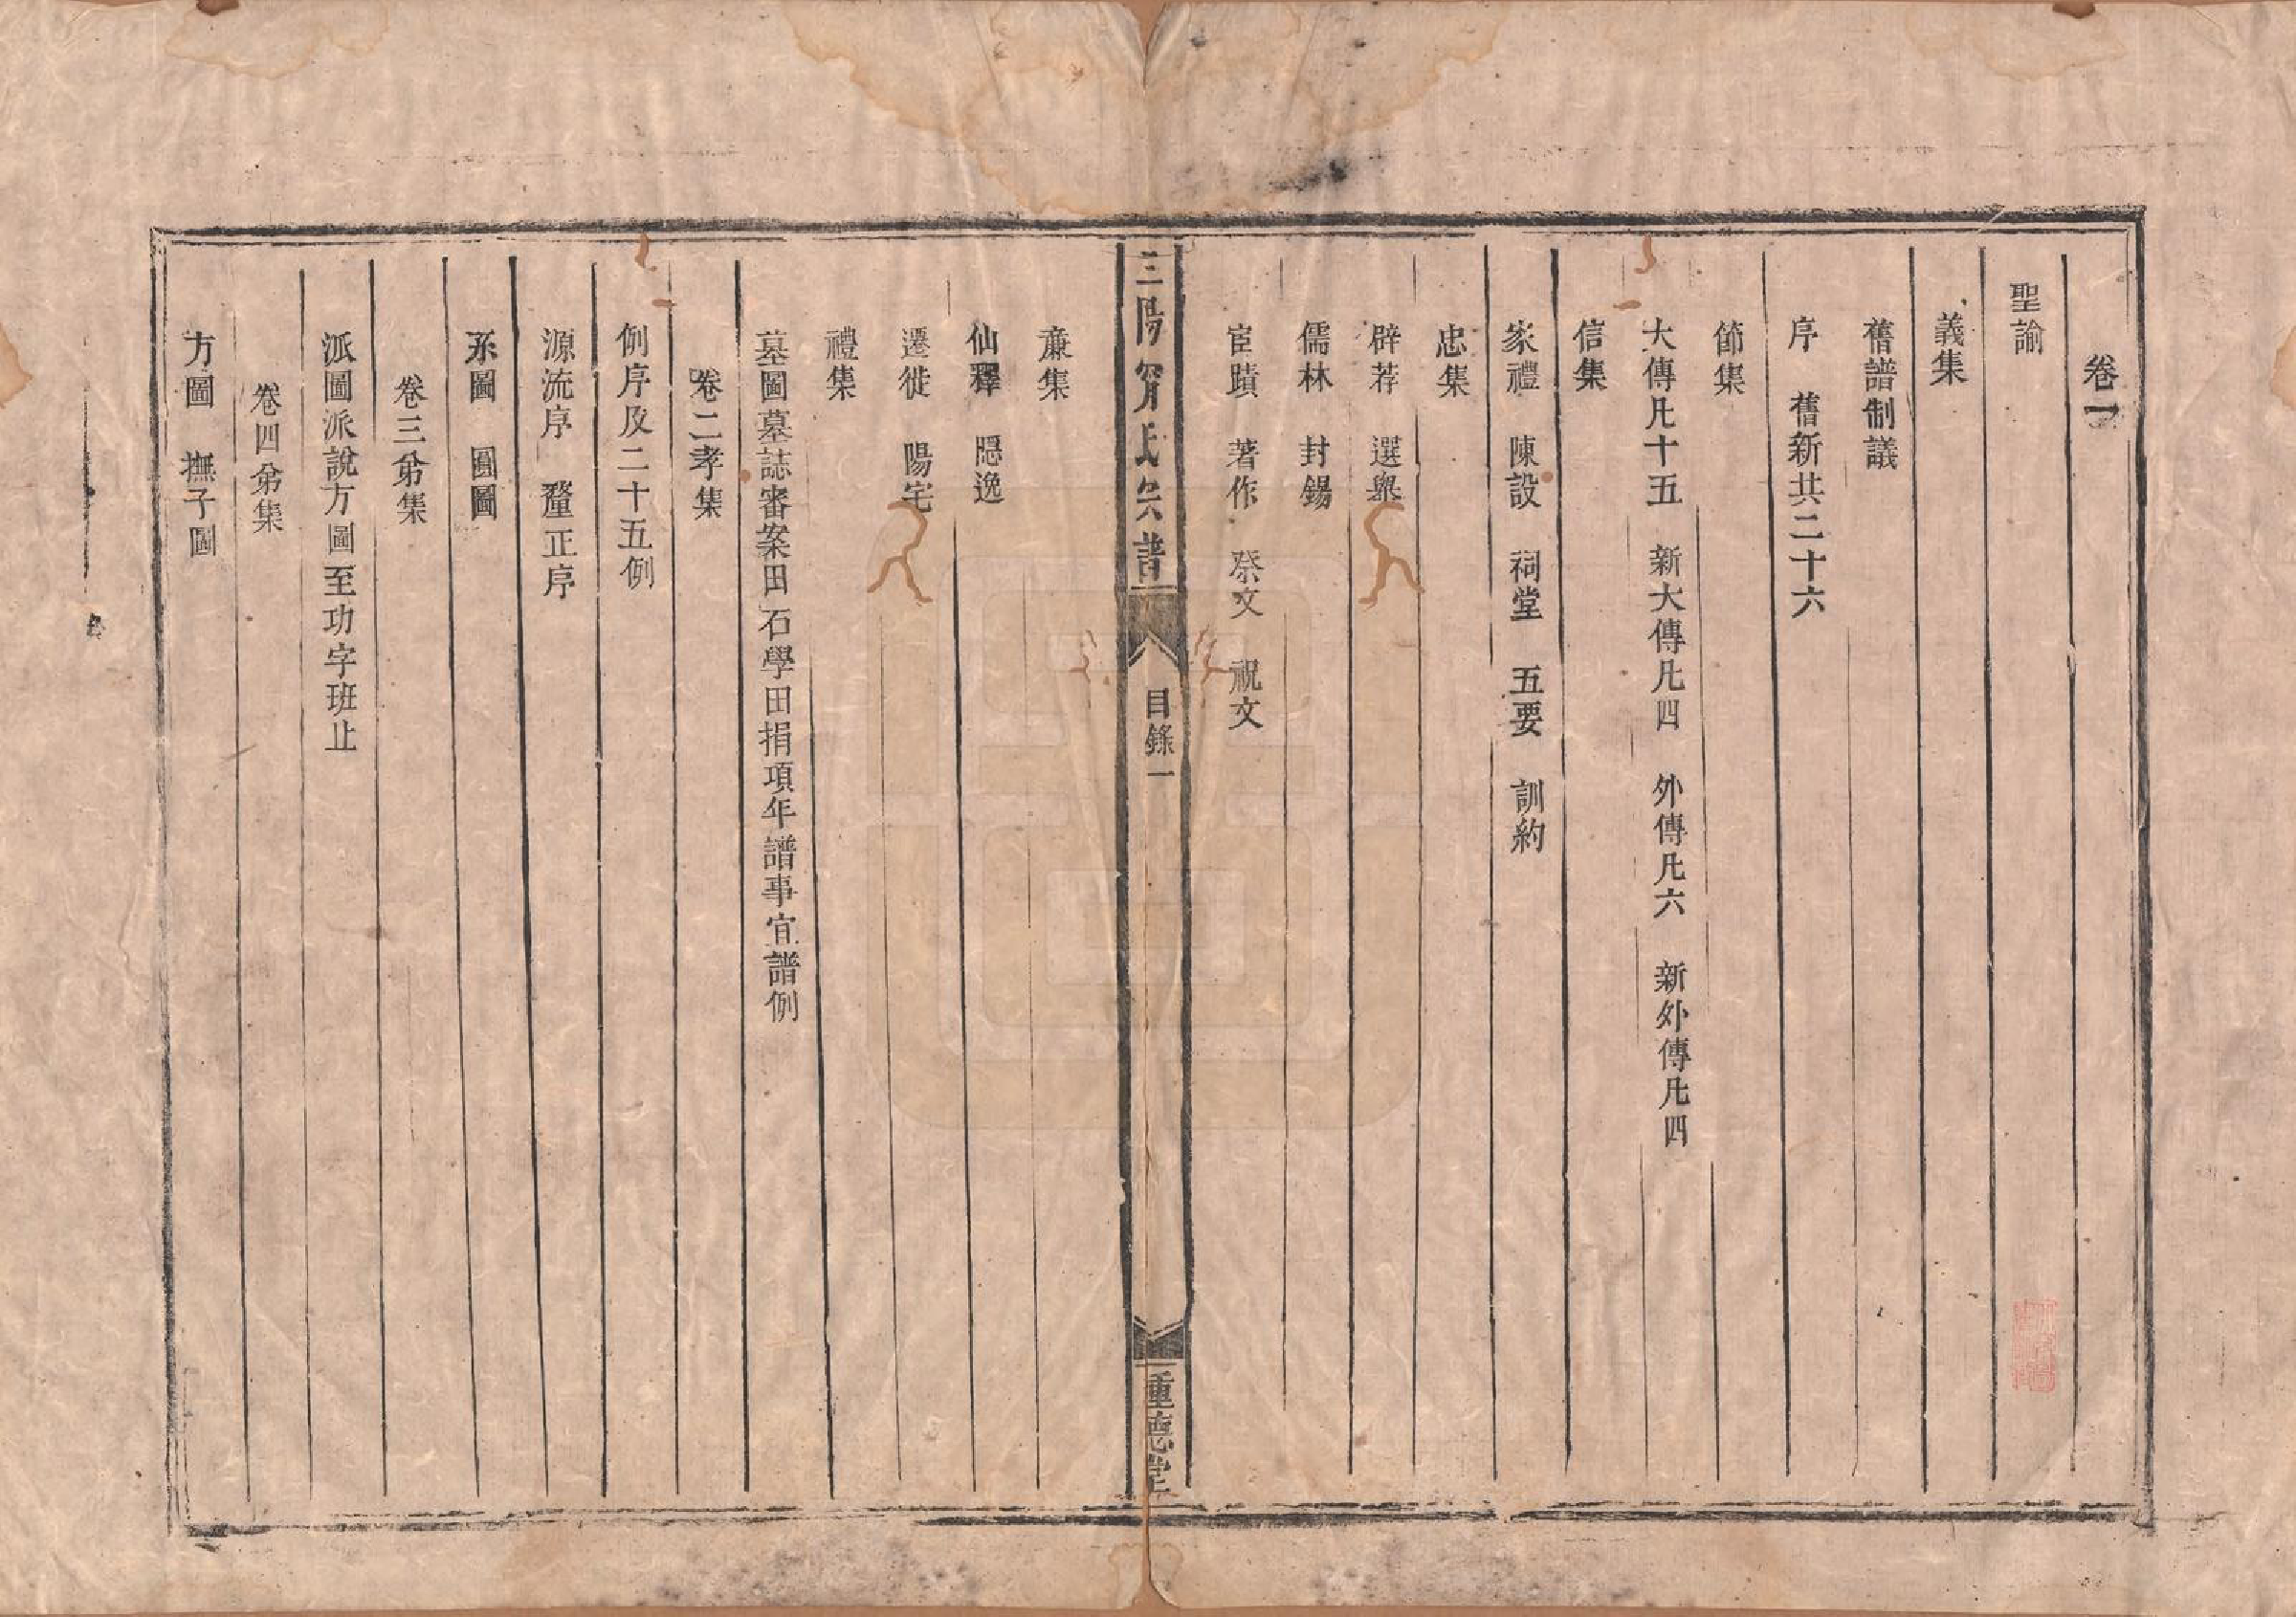 卷一
聖諭
義集
舊譜制議
序　舊新共二十六
節集
大傳凡十五　新大傳凡四　外傳凡六　新外傳凡四
信集
家禮　陳設　祠堂　五要　訓約
忠集
辟荐　選舉
儒林　封錫
宦蹟　著作　祭文　祝文
三陽甯氏宗譜　目錄一　重德堂
亷集
仙釋　隠逸
遷徙　陽宅
禮集
墓圖墓誌審案田石學田捐項年譜事宜譜例
卷二孝集
例序及二十五例
源流序　釐正序
系圖　圓圖
卷三弟集
派圖派說方圖至功字班止
卷四弟集
方圖　撫子圖